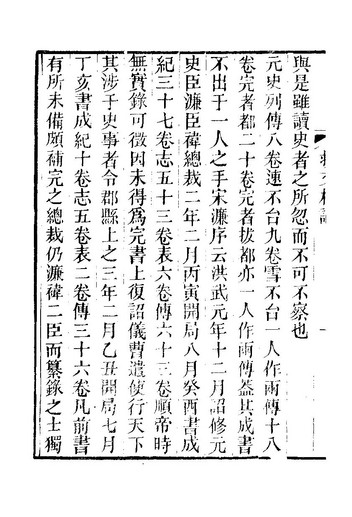 與是雖讀史者之所忽而不可不察也
元史列傳八卷速不台九卷雪不台一人作兩傳十八
卷完者都二十卷完者拔都亦一人作兩傳葢其成書
不出于一人之手宋濂序云洪武元年十二月詔修元
史臣濂臣褘總裁二年二月丙寅開局八月癸酉書成
紀三十七卷志五十三卷表六卷傳六十三卷順帝時
無實錄可徵因未得爲完書上復詔儀曹遣使行天下
其涉于史事者令郡縣上之三年二月乙丑開局七月
丁亥書成紀十卷志五卷表二卷傳三十六卷凡前書
有所未備頗補完之總裁仍濂褘二臣而纂錄之士獨